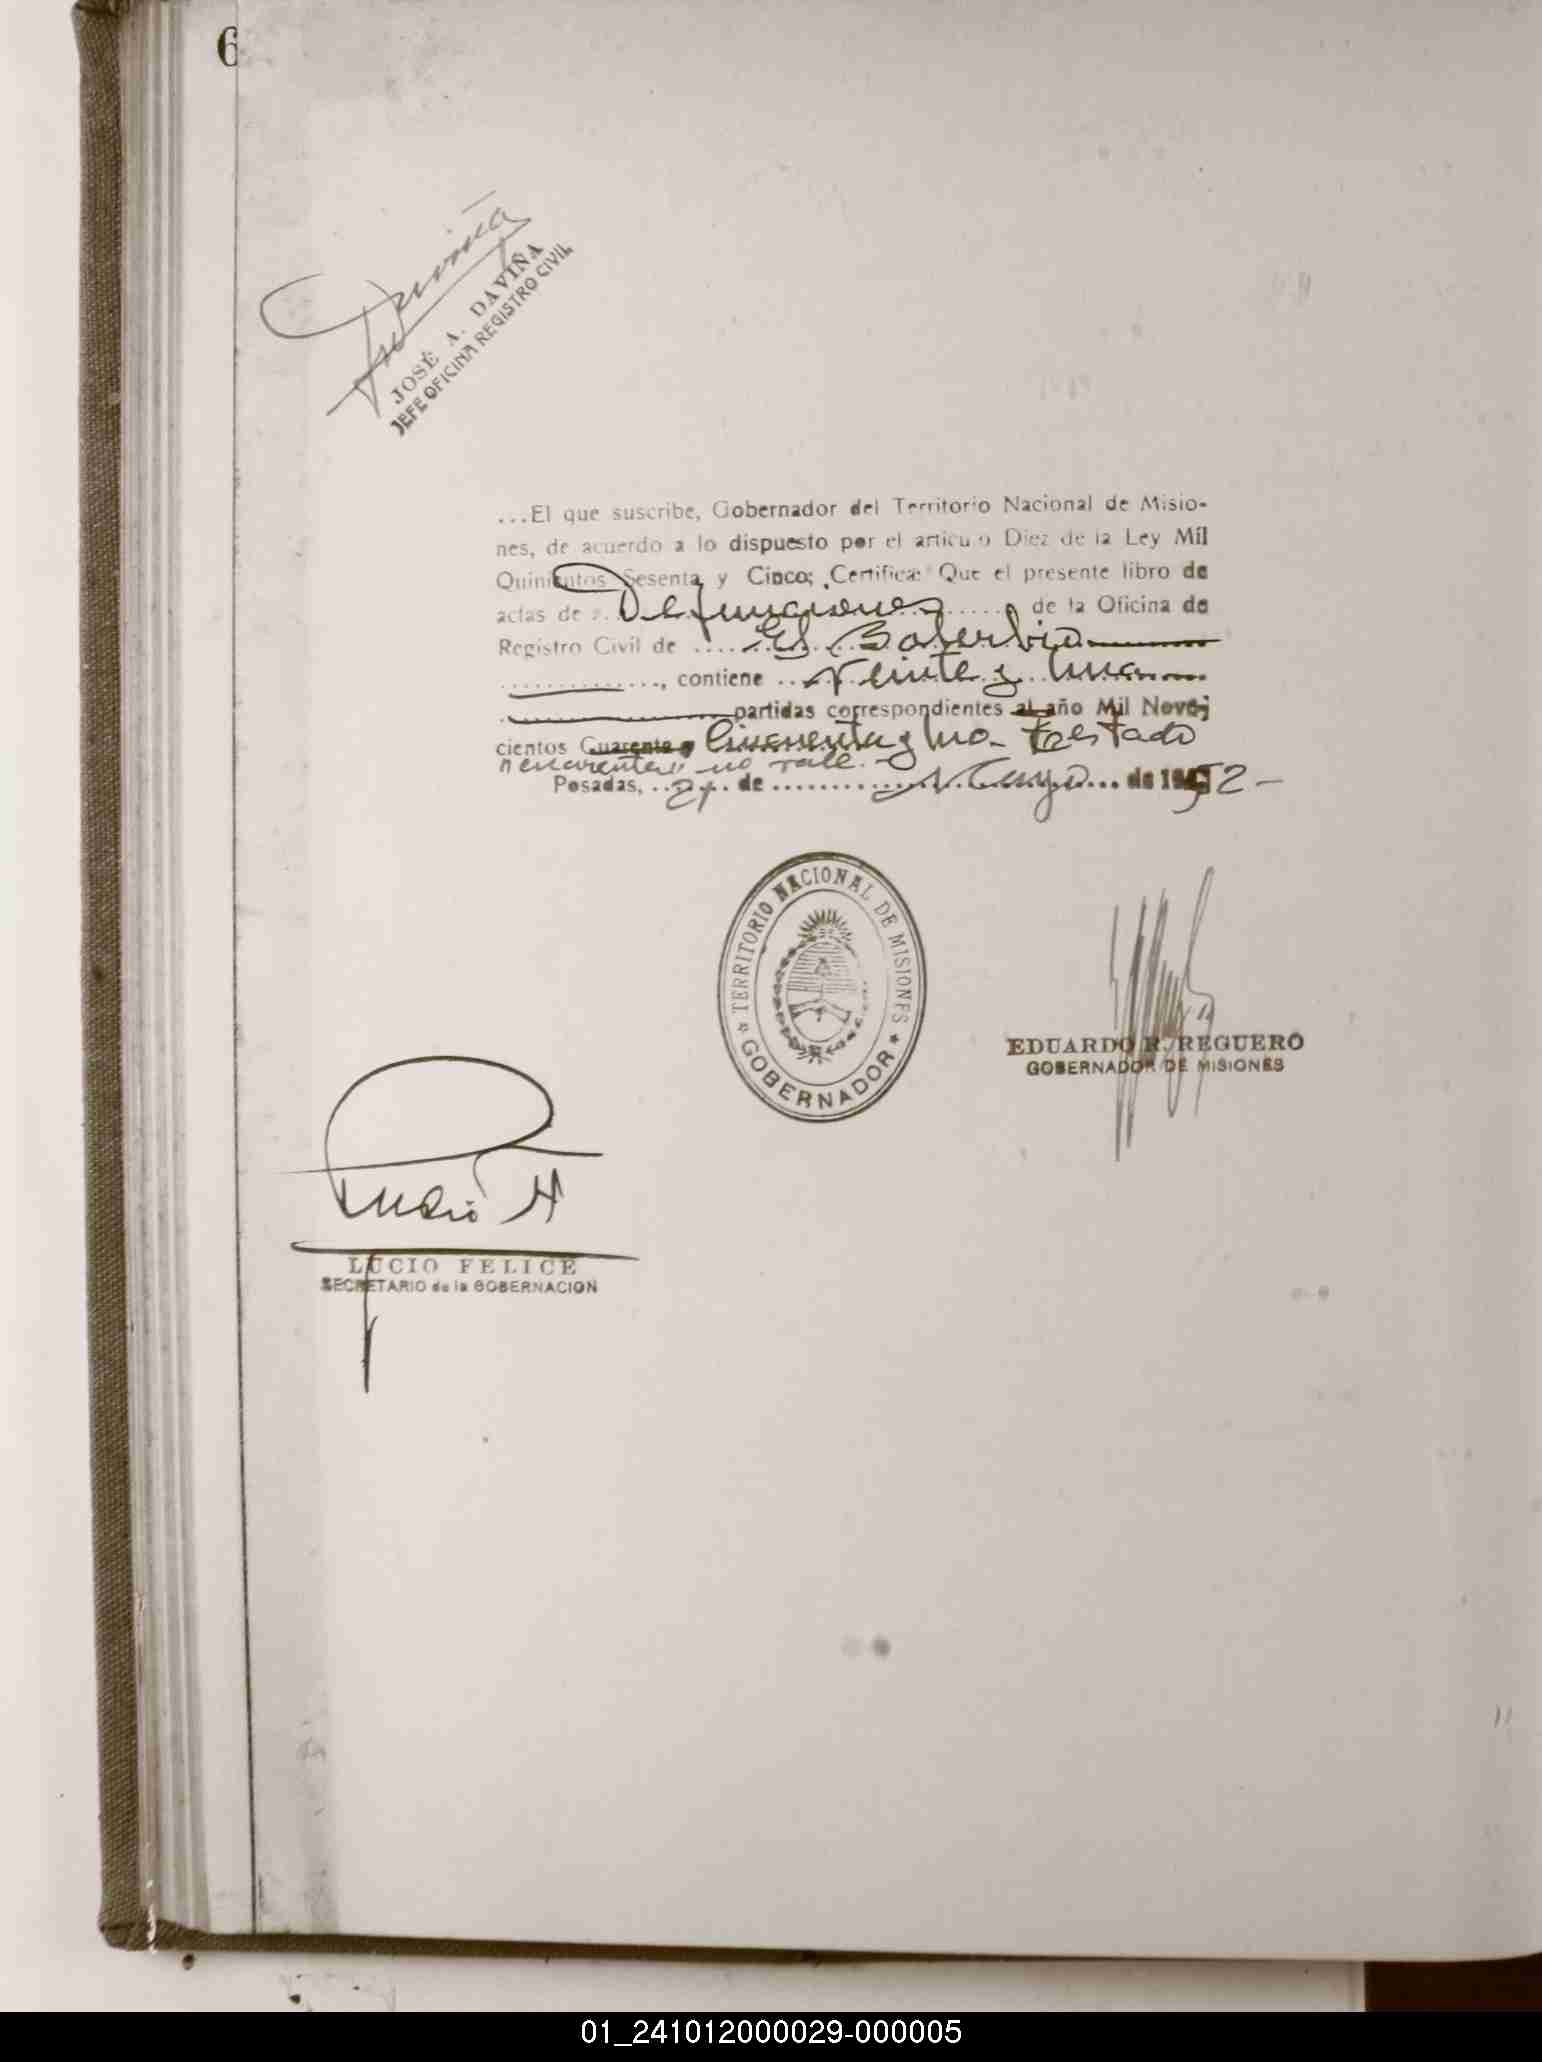 6
Daviña
JOSÉ A. DAVIÑA
JEFE OFICINA REGISTRO CIVIL
...El que suscribe, Gobernador del Territorio Nacional de Misio-
nes, de acuerdo a lo dispuesto por el articulo Diez de la Ley Mil
Quinientos Sesenta y Cinco; Certifica: Que el presente libro de
actas de Defunciones de la Oficina de
Registro Civil de El Soberbio
, contiene Veinte y una
partidas correspondientes al año Mil Nove-
cientos Cuarenta y Cincuenta y uno. Testado
"cuarenta" no vale.
Posadas, 21 de Mayo de 1952-
TERRITORIO NACIONAL DE MISIONES
GOBERNADOR
EDUARDO R. REGUERO
GOBERNADOR DE MISIONES
Lucio
LUCIO FELICE
SECRETARIO de la GOBERNACION
01_241012000029-000005